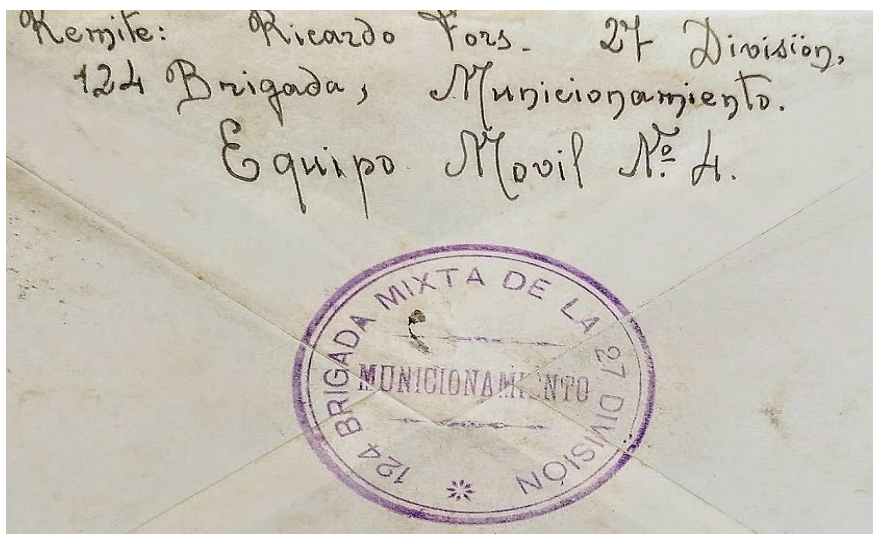 Remite: Ricardo Fors. 27 División,
124 Brigada, Municionamiento.
Equipo Movil Nº 4.
124 BRIGADA MIXTA DE LA 27 DIVISIÓN
MUNICIONAMIENTO